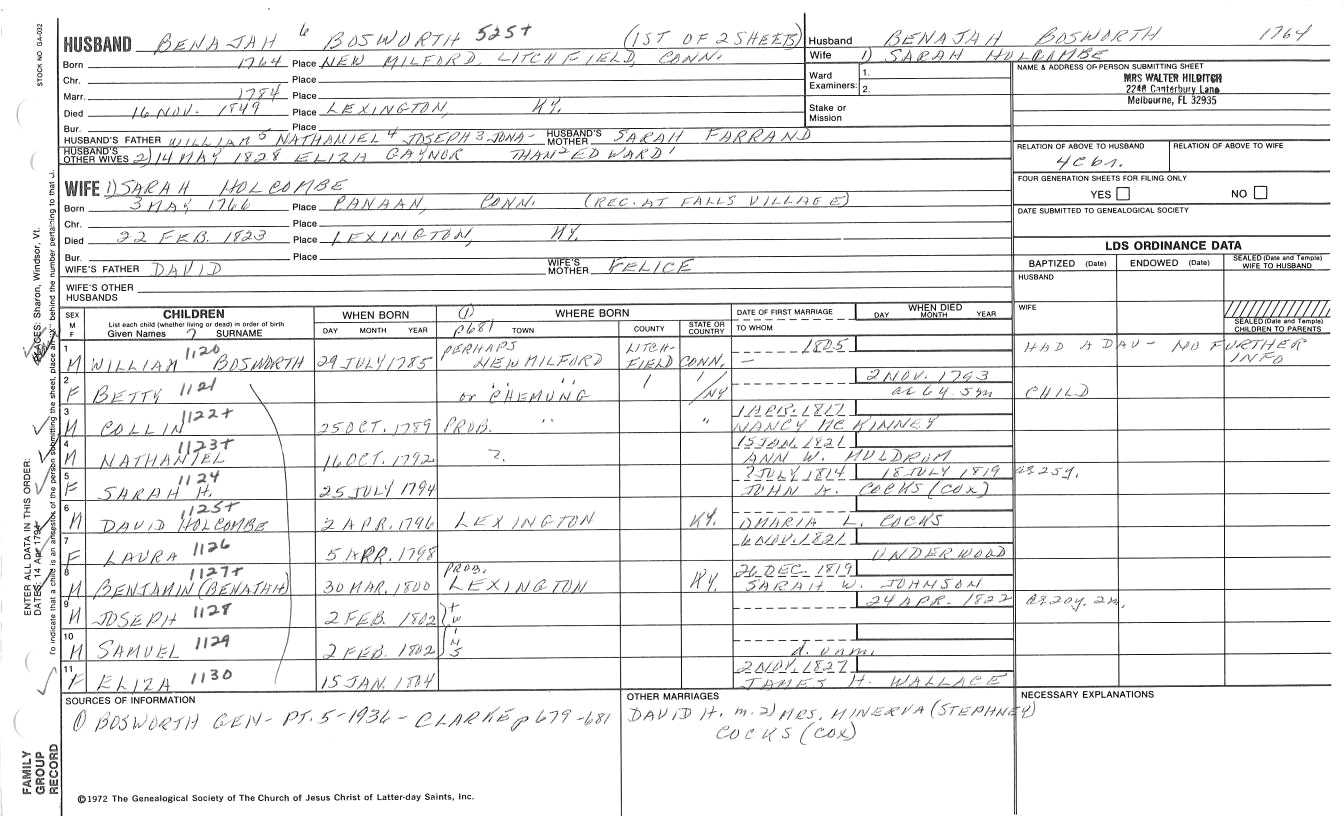 STOCK NO GA-032
HUSBAND BENAJAH 6 BOSWORTH 525+ (1ST OF 2 SHEETS)
Born 1764 Place NEW MILFORD, LITCHFIELD, CONN.
Chr. Place
Marr. 1784 Place
Died 16 NOV. 1849 Place LEXINGTON, KY.
Bur. Place
HUSBAND'S FATHER WILLIAM 5 NATHANIEL 4 JOSEPH 3 JONA- HUSBAND'S MOTHER SARAH FARRAND
HUSBAND'S OTHER WIVES 2) 14 MAY 1828 ELIZA GAYNOR THAN 2 EDWARD 1
WIFE 1) SARAH HOLCOMBE
Born 3 MAY 1766 Place CANAAN, CONN. (REC. AT FALLS VILLAGE)
Chr. Place
Died 22 FEB. 1823 Place LEXINGTON, KY.
Bur. Place
WIFE'S FATHER DAVID WIFE'S MOTHER FELICE
WIFE'S OTHER HUSBANDS
Husband BENAJAH BOSWORTH 1764
Wife 1) SARAH HOLCOMBE
Ward Examiners: 1.
2.
Stake or Mission
NAME & ADDRESS OF PERSON SUBMITTING SHEET
MRS WALTER HILDITCH
2248 Canterbury Lane
Melbourne, FL 32935
RELATION OF ABOVE TO HUSBAND RELATION OF ABOVE TO WIFE
4C 6r.
FOUR GENERATION SHEETS FOR FILING ONLY
YES NO
DATE SUBMITTED TO GENEALOGICAL SOCIETY
LDS ORDINANCE DATA
BAPTIZED (Date) ENDOWED (Date) SEALED (Date and Temple) WIFE TO HUSBAND
HUSBAND
WIFE
SEALED (Date and Temple) CHILDREN TO PARENTS
SEX M F
CHILDREN
List each child (whether living or dead) in order of birth
Given Names 7 SURNAME
WHEN BORN
DAY MONTH YEAR
(1) p681
WHERE BORN
TOWN COUNTY STATE OR COUNTRY
DATE OF FIRST MARRIAGE
TO WHOM
WHEN DIED
DAY MONTH YEAR
1 M WILLIAM 1120 BOSWORTH 29 JULY 1785 PERHAPS NEW MILFORD LITCH-FIELD CONN. 1805 — HAD A DAU - NO FURTHER INFO
2 F BETTY 1121 " " " or CHEMUNG /NY 2 NOV. 1793 ae 6y. 5m CHILD
3 M COLLIN 1122+ 25 OCT. 1789 PROB. " " 1 APR. 1817 NANCY MCKINNEY
4 M NATHANIEL 1123+ 16 OCT. 1792 ?. 15 JAN. 1821 ANN W. MULDROM
5 F SARAH H. 1124 25 JULY 1794 ? JULY 1814 18 JULY 1819 JOHN A. COCKS (COX) ae 25y.
6 M DAVID HOLCOMBE 1125+ 2 APR. 1796 LEXINGTON KY. MARIA L. COCKS
7 F LAURA 1126 5 APR. 1798 6 NOV. 1821 UNDERWOOD
8 M BENJAMIN (BENAJAH) 1127+ 30 MAR. 1800 PROB. LEXINGTON KY. 26 DEC. 1819 SARAH W. JOHNSON
9 M JOSEPH 1128 2 FEB. 1802 TW 24 APR. 1822 ae 20y. 2m.
10 M SAMUEL 1129 2 FEB. 1802 INS d. unm.
11 F ELIZA 1130 15 JAN. 1804 2 NOV. 1827 JAMES H. WALLACE
SOURCES OF INFORMATION
(1) BOSWORTH GEN- PT. 5-1936 - CLARKE p 679-681
OTHER MARRIAGES
DAVID H. m. 2) MRS. MINERVA (STEPHNEY) COCKS (COX)
NECESSARY EXPLANATIONS
©1972 The Genealogical Society of The Church of Jesus Christ of Latter-day Saints, Inc.
FAMILY GROUP RECORD
ENTER ALL DATA IN THIS ORDER:
DATES: 14 Apr 1794
PLACES: Sharon, Windsor, Vt.
To indicate that a child is an ancestor of the person submitting the sheet, place an behind the number pertaining to that